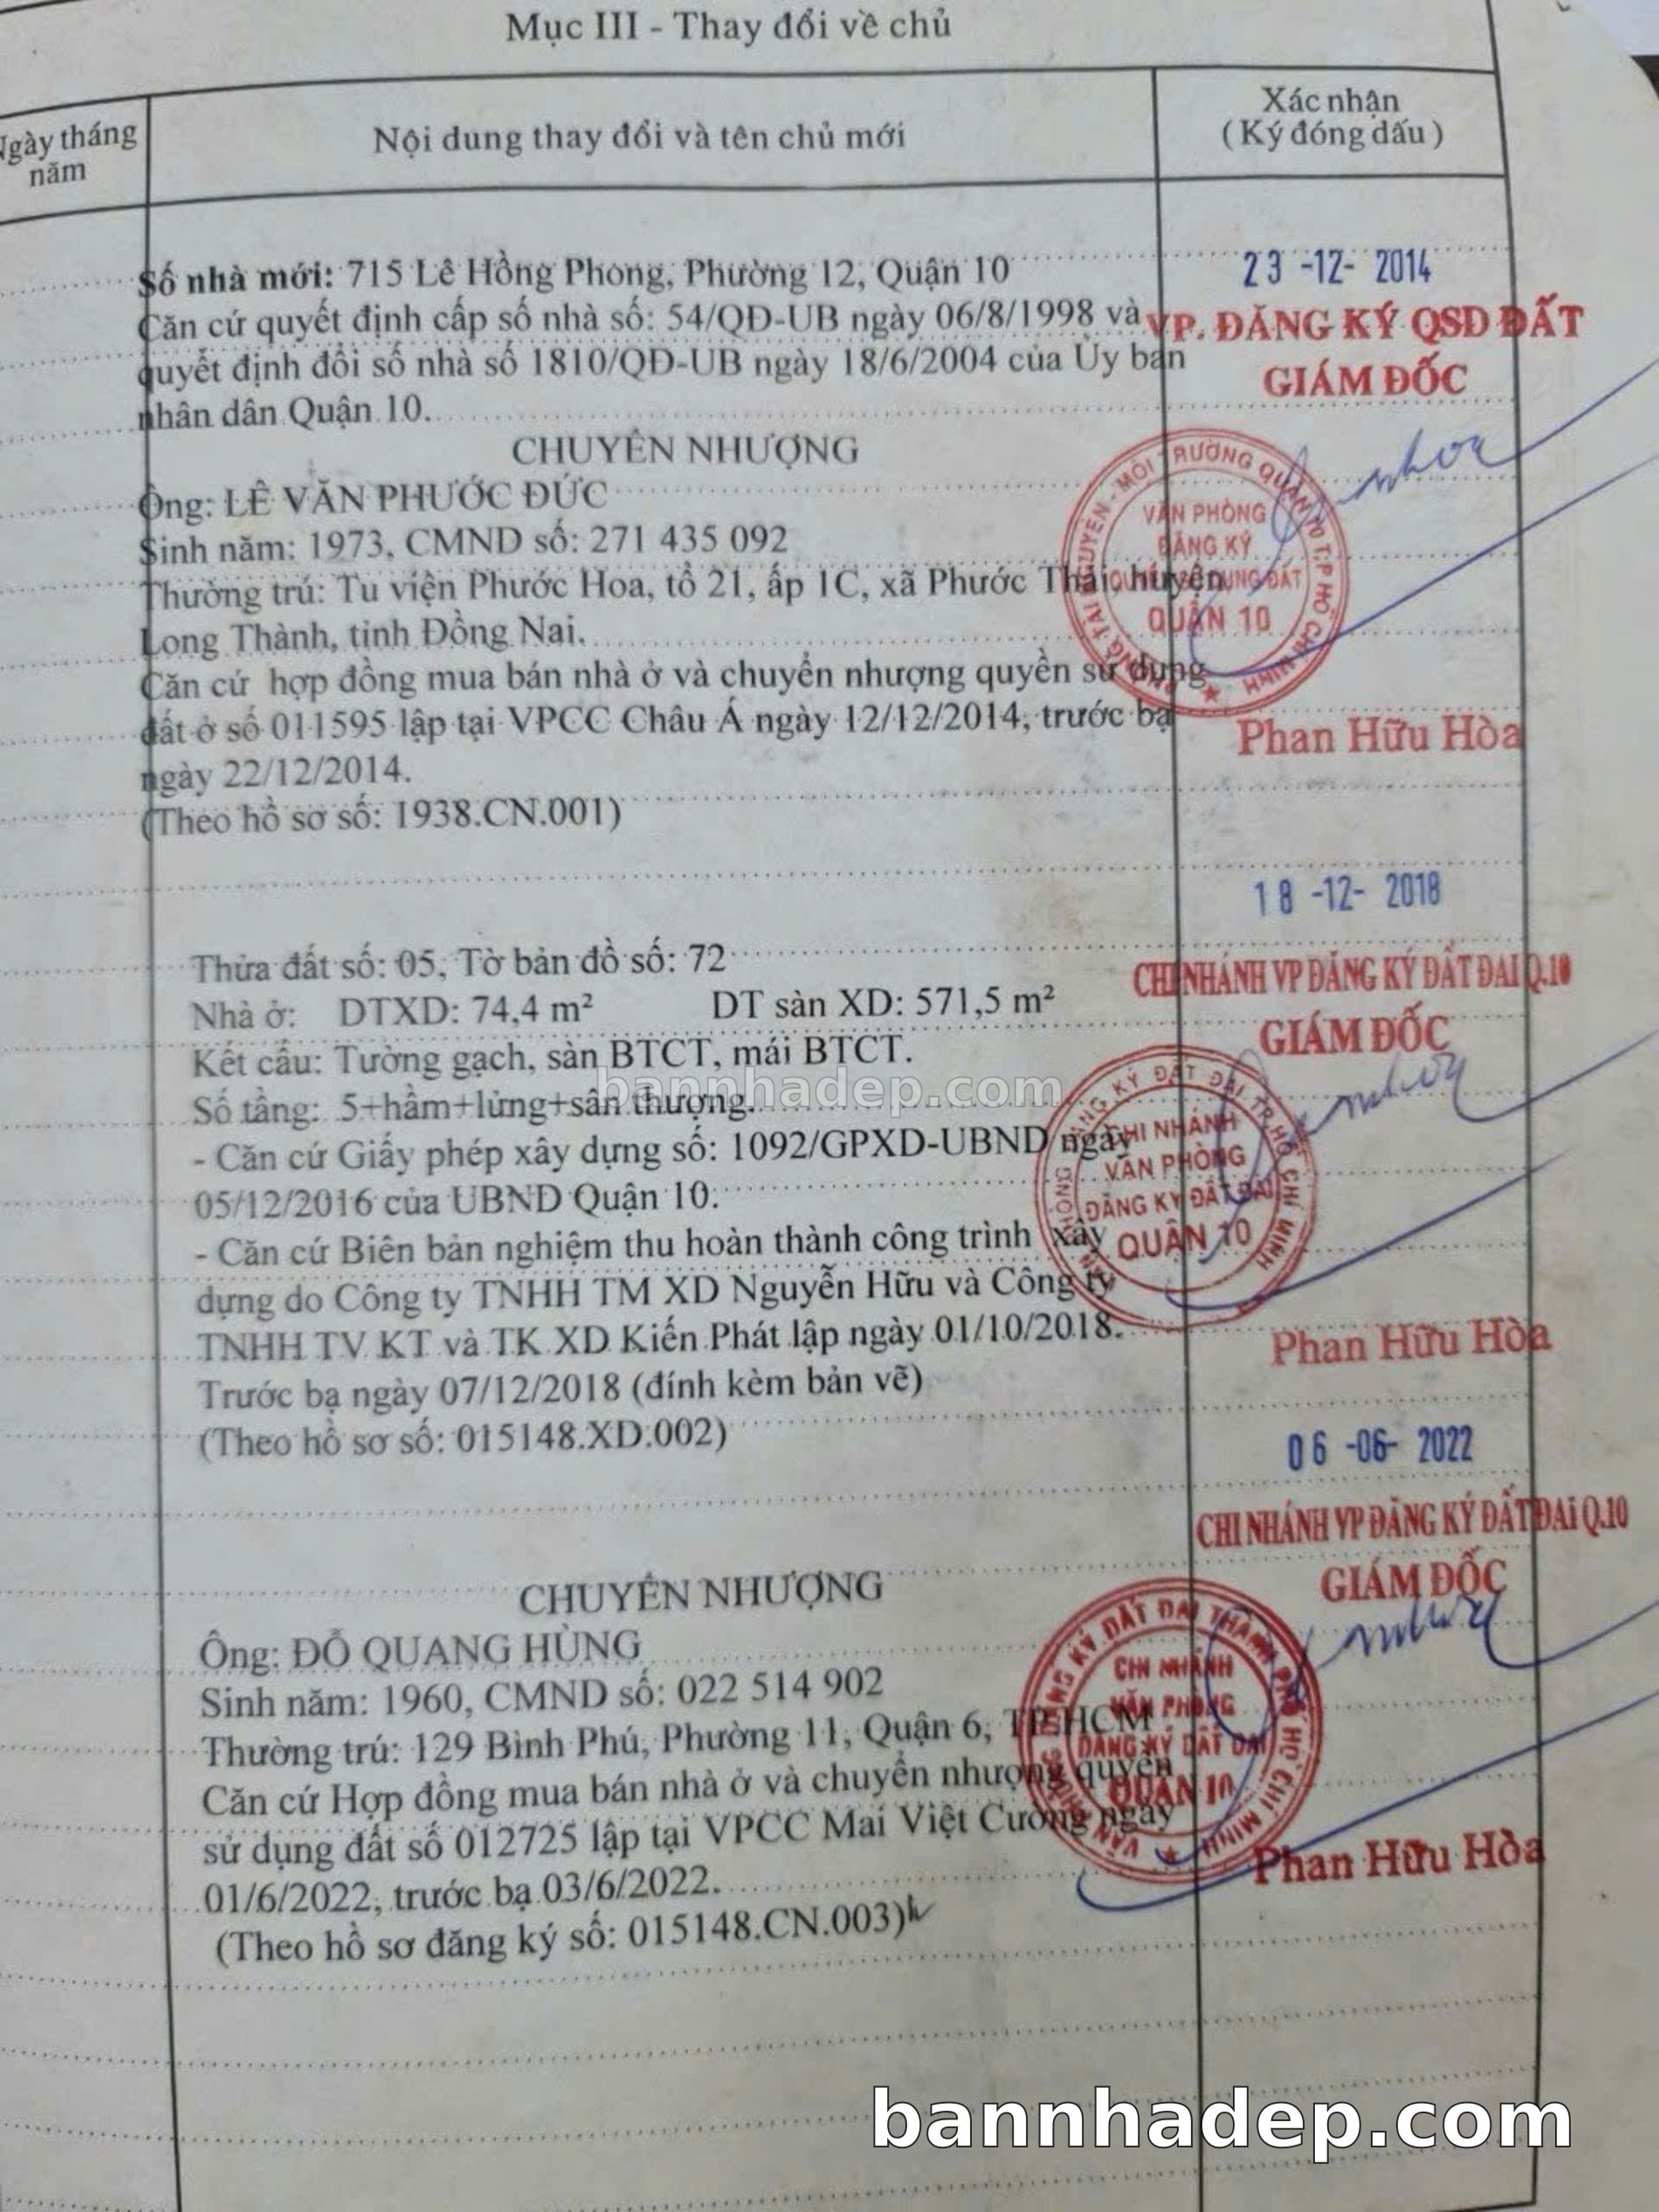 Mục III - Thay đổi về chủ
Ngày tháng năm
Nội dung thay đổi và tên chủ mới
Xác nhận
( Ký đóng dấu )
Số nhà mới: 715 Lê Hồng Phong, Phường 12, Quận 10
Căn cứ quyết định cấp số nhà số: 54/QĐ-UB ngày 06/8/1998 và
quyết định đổi số nhà số 1810/QĐ-UB ngày 18/6/2004 của Ủy ban
nhân dân Quận 10.
23 -12- 2014
VP. ĐĂNG KÝ QSD ĐẤT
GIÁM ĐỐC
CHUYỂN NHƯỢNG
Ông: LÊ VĂN PHƯỚC ĐỨC
Sinh năm: 1973, CMND số: 271 435 092
Thường trú: Tu viện Phước Hoa, tổ 21, ấp 1C, xã Phước Thái, huyện
Long Thành, tỉnh Đồng Nai.
Căn cứ hợp đồng mua bán nhà ở và chuyển nhượng quyền sử dụng
đất ở số 011595 lập tại VPCC Châu Á ngày 12/12/2014, trước bạ
ngày 22/12/2014.
(Theo hồ sơ số: 1938.CN.001)
VĂN PHÒNG
ĐĂNG KÝ
QUYỀN SỬ DỤNG ĐẤT
QUẬN 10
Phan Hữu Hòa
18 -12- 2018
CHI NHÁNH VP ĐĂNG KÝ ĐẤT ĐAI Q.10
GIÁM ĐỐC
Thửa đất số: 05, Tờ bản đồ số: 72
Nhà ở: DTXD: 74,4 m² DT sàn XD: 571,5 m²
Kết cấu: Tường gạch, sàn BTCT, mái BTCT.
bannhadep.com
Số tầng: 5+hầm+lửng+sân thượng.
- Căn cứ Giấy phép xây dựng số: 1092/GPXD-UBND ngày
05/12/2016 của UBND Quận 10.
- Căn cứ Biên bản nghiệm thu hoàn thành công trình xây
dựng do Công ty TNHH TM XD Nguyễn Hữu và Công ty
TNHH TV KT và TK XD Kiến Phát lập ngày 01/10/2018.
Trước bạ ngày 07/12/2018 (đính kèm bản vẽ)
(Theo hồ sơ số: 015148.XD.002)
CHI NHÁNH
VĂN PHÒNG
ĐĂNG KÝ ĐẤT ĐAI
QUẬN 10
Phan Hữu Hòa
06 -06- 2022
CHI NHÁNH VP ĐĂNG KÝ ĐẤT ĐAI Q.10
GIÁM ĐỐC
CHUYỂN NHƯỢNG
Ông: ĐỖ QUANG HÙNG
Sinh năm: 1960, CMND số: 022 514 902
Thường trú: 129 Bình Phú, Phường 11, Quận 6, TP.HCM
Căn cứ Hợp đồng mua bán nhà ở và chuyển nhượng quyền
sử dụng đất số 012725 lập tại VPCC Mai Việt Cường ngày
01/6/2022, trước bạ 03/6/2022.
(Theo hồ sơ đăng ký số: 015148.CN.003)
CHI NHÁNH
VĂN PHÒNG
ĐĂNG KÝ ĐẤT ĐAI
QUẬN 10
Phan Hữu Hòa
bannhadep.com